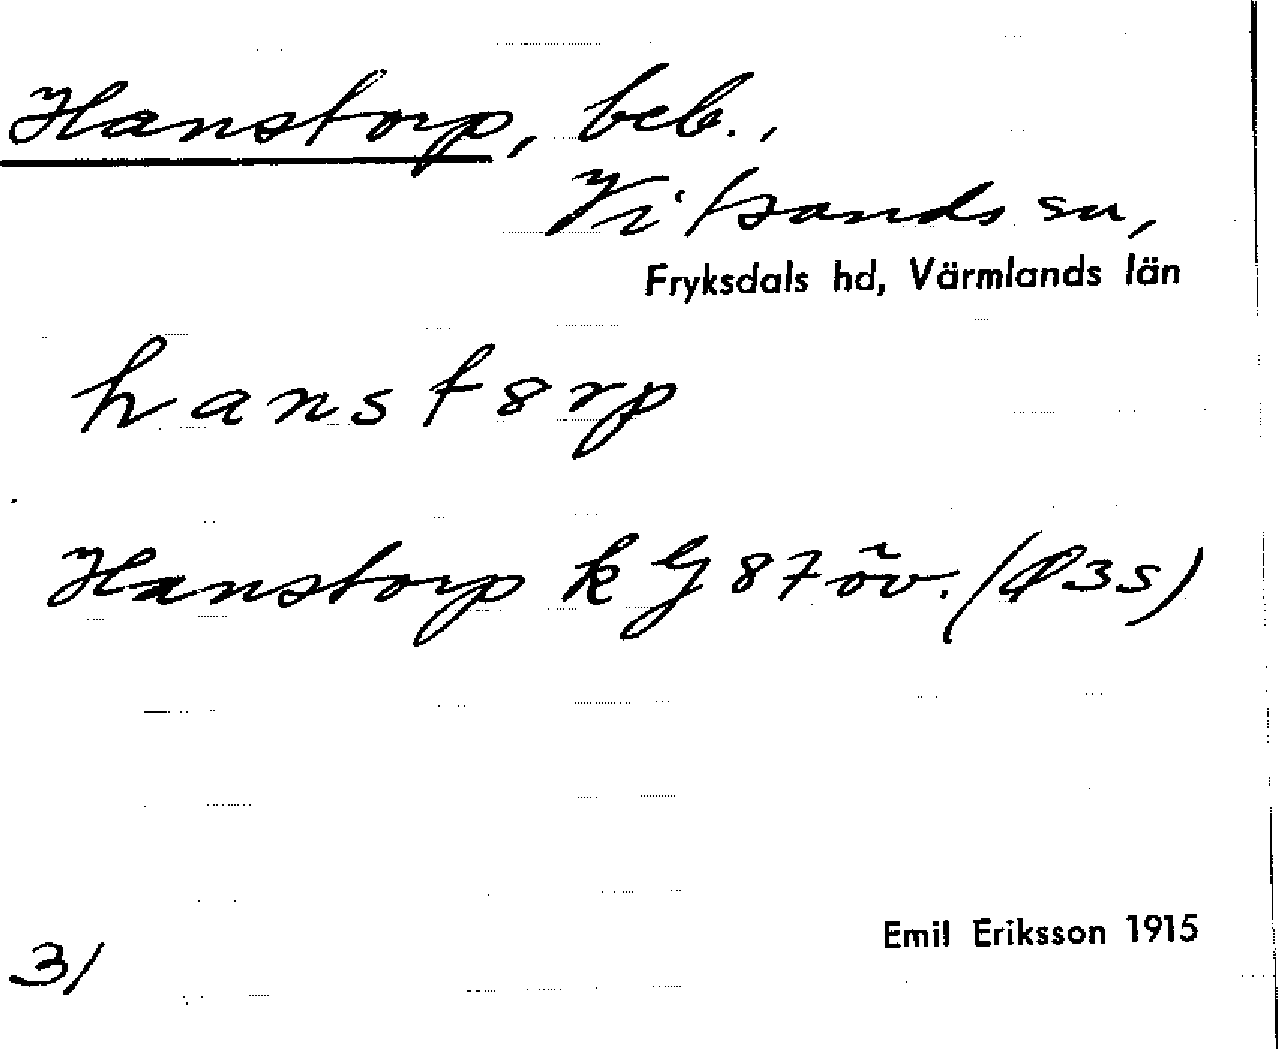 Hanstorp, beb.,
Vitsands sn,
Fryksdals hd, Värmlands län
hanst8rp
Hanstorp k G 87 öv. (
31
Emil Eriksson 1915